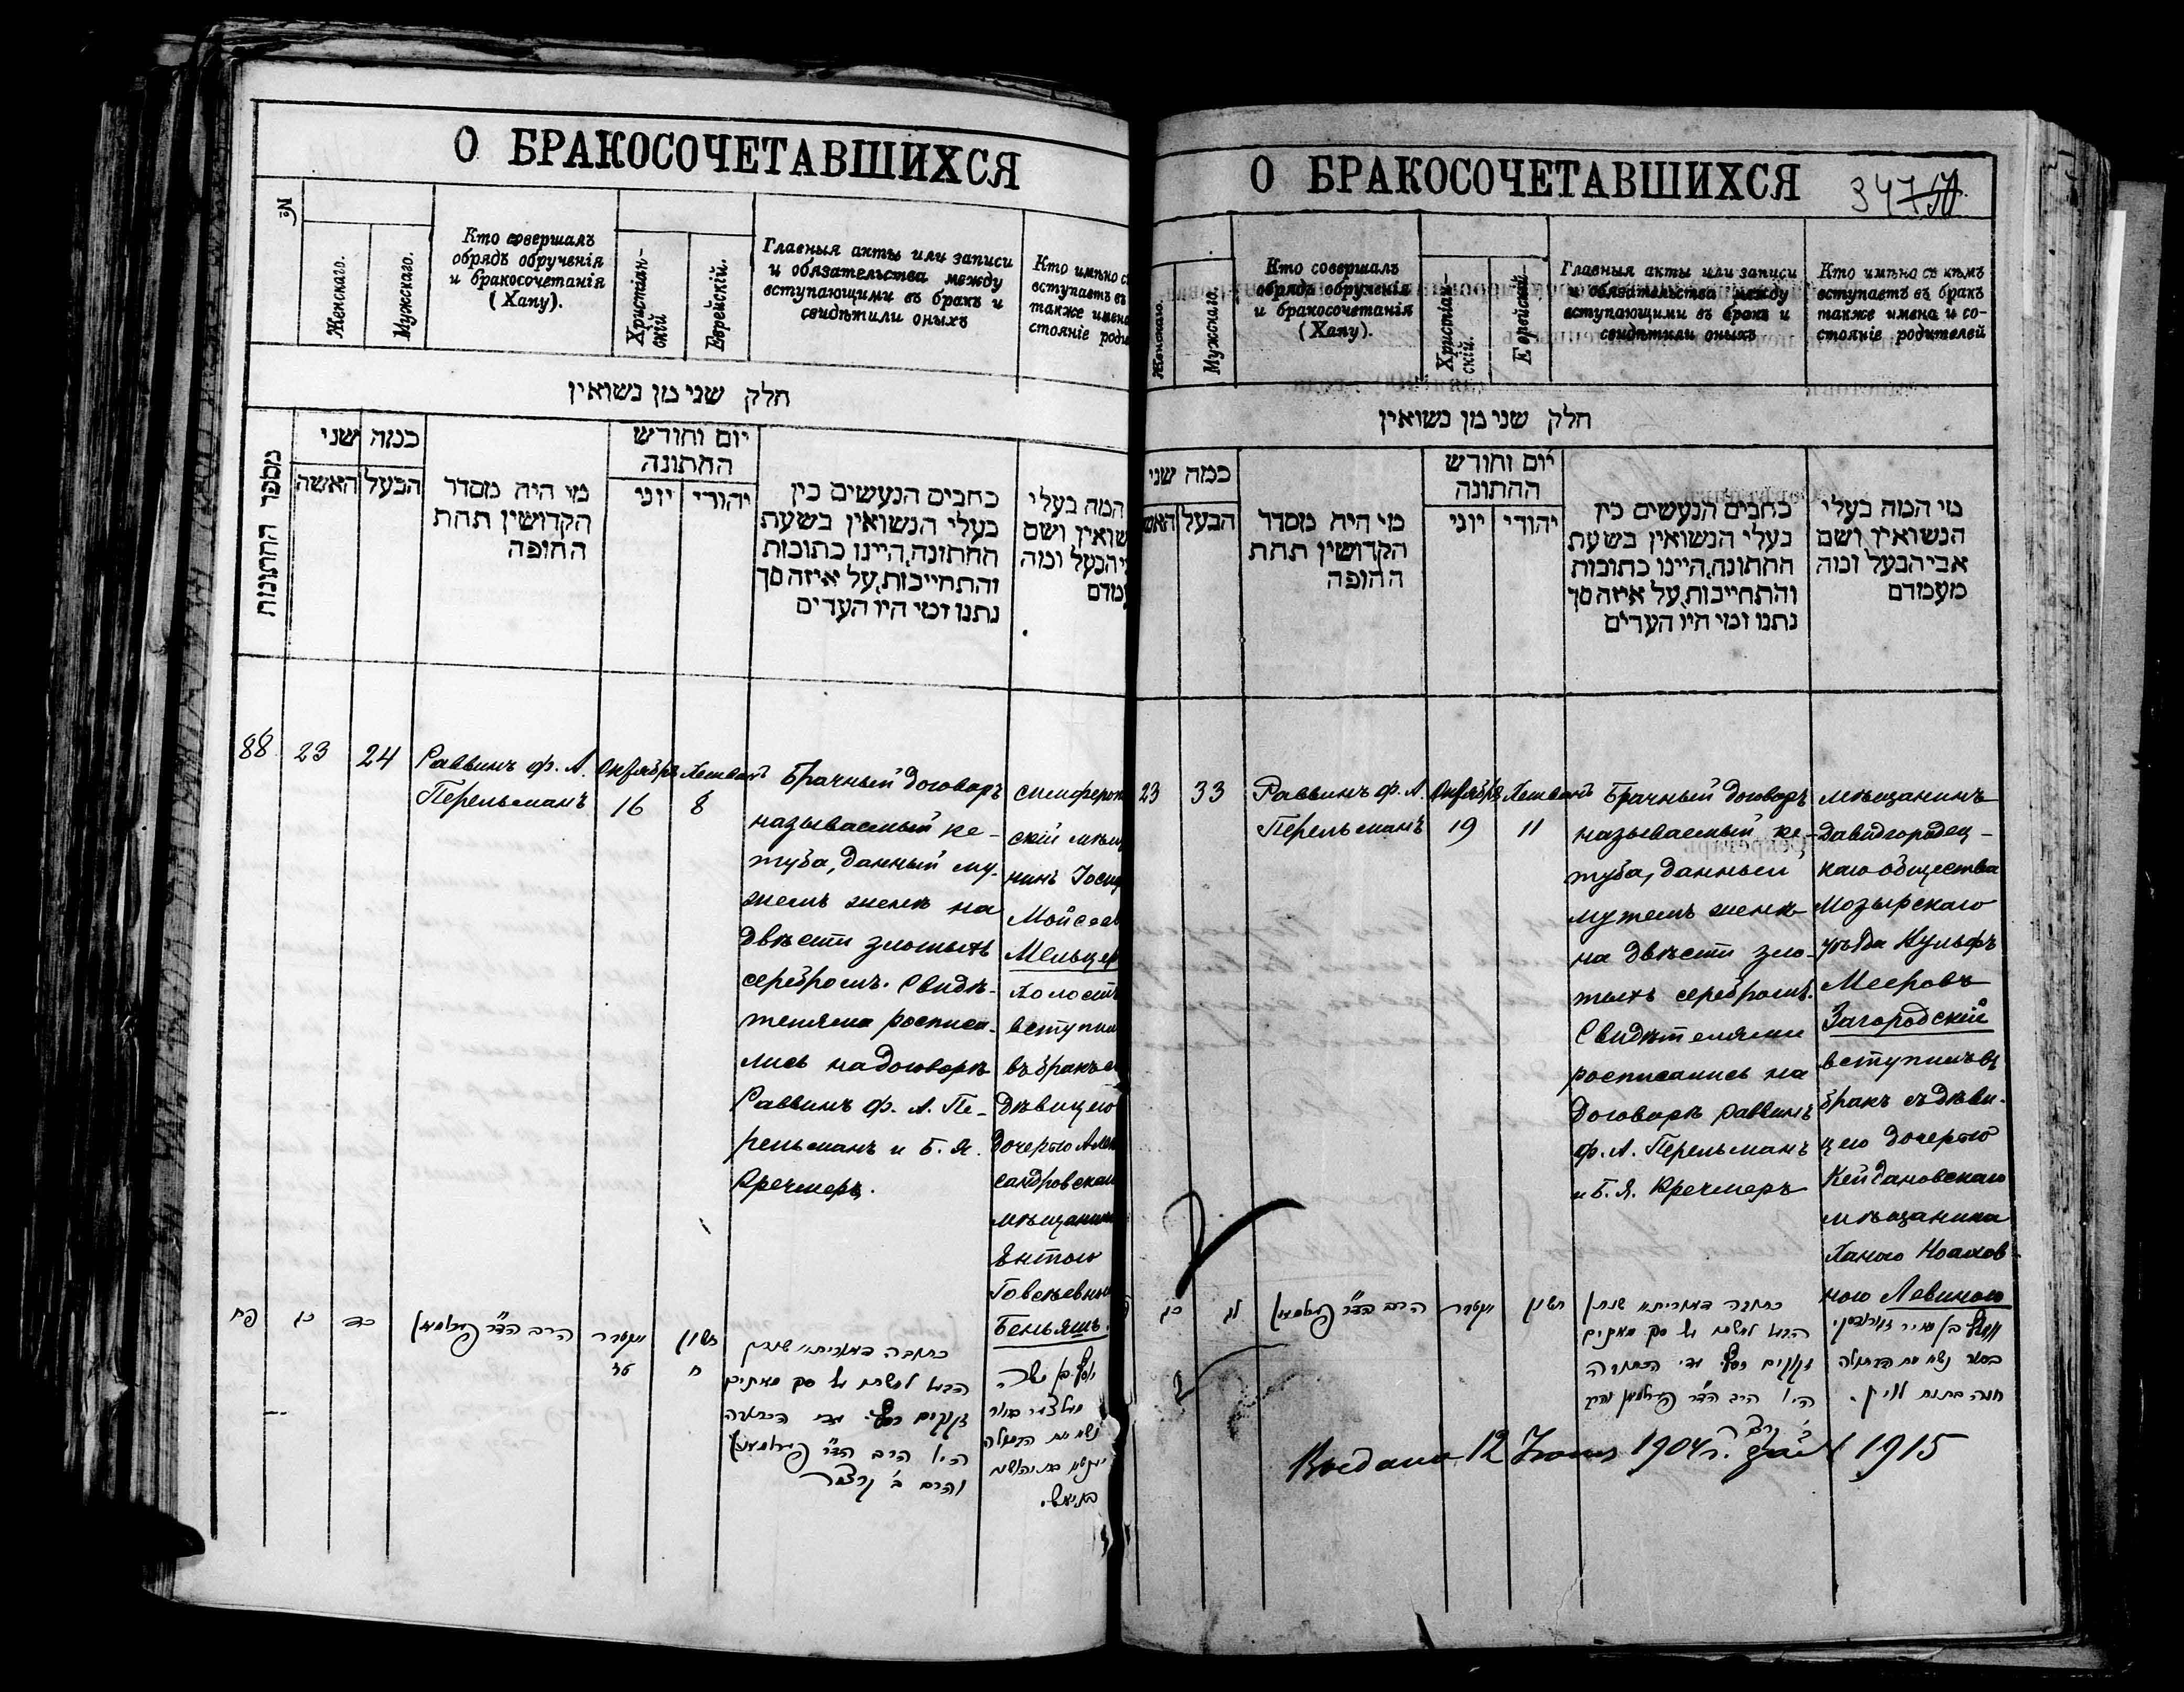 О БРАКОСОЧЕТАВШИХСЯ
№
Женскаго.
Мужскаго.
Кто совершалъ
обрядъ обрученія
и бракосочетанія
(Хапу).
Христіан-
скій
Еврейскій.
Главныя акты или записи
и обязательства между
вступающими въ бракъ и
свидѣтили оныхъ
Кто имѣно с
вступаетъ въ
также имена
стояніе роди
חלק שני מן נשואין
מספר החתונות
כמה שני
האשה
הבעל
מי היה מסדר
הקדושין תחת
החופה
יום וחודש
החתונה
יוני
יהודי
כתבים הנעשים בין
בעלי הנשואין בשעת
החתונה, היינו כתובות
והתחייבות, על איזה סך
נתנו ומי היו העדים
המה בעלי
שואין ושם
יהבעל ומה
עמדם
88
23
24
Раввинъ Ф. А.
Перельманъ
Октябрь
16
Хешванъ
8
Брачный договоръ
называемый ке-
туба, данный му-
жемъ женѣ на
двѣсти злотыхъ
серебромъ. Свидѣ-
телями росписа-
лись на договорѣ
Раввинъ Ф. А. Пе-
рельманъ и Б. Я.
Кречмеръ.
симфероп
скій мѣщ
нинъ Іоси
Мойсеев
Мельцер
холостъ
вступил
въ бракъ с
дѣвицею
дочерью Алек
сандровскаго
мѣщанина
Ентою
Говсѣевною
Беньяшъ.
פח
כג
כד
הרב הד״ר פערלמאן
אקטבר
טז
חשון
ח
כתובה דאורייתא שנתן
הבעל לאשתו על סך מאתים
זקוקים כסף. עדי הכתובה
היו הרב הד״ר פערלמאן
והרב ב׳ קרצמר
יוסף בן משה
מלצר בחור
נשא את הבתולה
О БРАКОСОЧЕТАВШИХСЯ
347
Женскаго.
Мужскаго.
Кто совершалъ
обрядъ обрученія
и бракосочетанія
(Хапу).
Христіан-
скій.
Еврейскій
Главныя акты или записи
и обязательства между
вступающими въ бракъ и
свидѣтили оныхъ
Кто имѣно съ кѣмъ
вступаетъ въ бракъ
также имена и со-
стояніе родителей
חלק שני מן נשואין
כמה שני
האשה
הבעל
מי היה מסדר
הקדושין תחת
החופה
יום וחודש
החתונה
יוני
יהודי
כתבים הנעשים בין
בעלי הנשואין בשעת
החתונה, היינו כתובות
והתחייבות, על איזה סך
נתנו ומי היו העדים
מי המה בעלי
הנשואין ושם
אבי הבעל ומה
מעמדם
23
33
Раввинъ Ф. А.
Перельманъ
Октябрь
19
Хешванъ
11
Брачный договоръ
называемый ке-
туба, данный
мужемъ женѣ
на двѣсти зло-
тыхъ серебромъ.
Свидѣтелями
росписались на
договорѣ раввинъ
Ф. А. Перельманъ
и Б. Я. Кречмеръ
мѣщанинъ
Давидгородец-
каго общества
Мозырскаго
уѣзда Нульфъ
Мееровъ
Загородскій
вступилъ въ
бракъ съ дѣви-
цею дочерью
Кейдановскаго
мѣщанина
Ханою Ноахов-
ною Левиною
כג
לג
הרב הד״ר פערלמאן
אקטבר
חשון
כתובה דאורייתא שנתן
הבעל לאשתו על סך מאתים
זקוקים כסף. עדי הכתובה
היו הרב הד״ר פערלמאן
ב׳ קרצמר
בחור נשא את הבתולה
12
1904 г.
1915